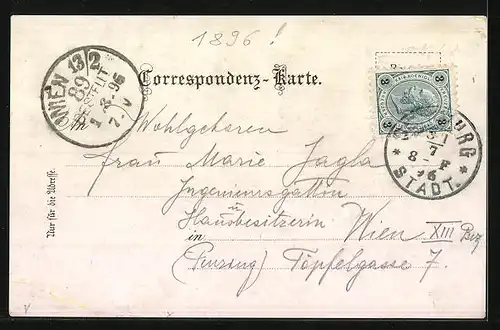 1896!
WIEN 13/2
89
BESTELLT
1.8.96
7.V
Correspondenz-Karte.
3 3
3 3
BURG
31
7
8-F
96
* STADT. *
An Wohlgeboren
Frau Marie Jagla
Ingenieursgattin
u
Hausbesitzerin
in Wien XIII Bez
(Penzing) Töpfelgasse 7.
Nur für die Adresse.